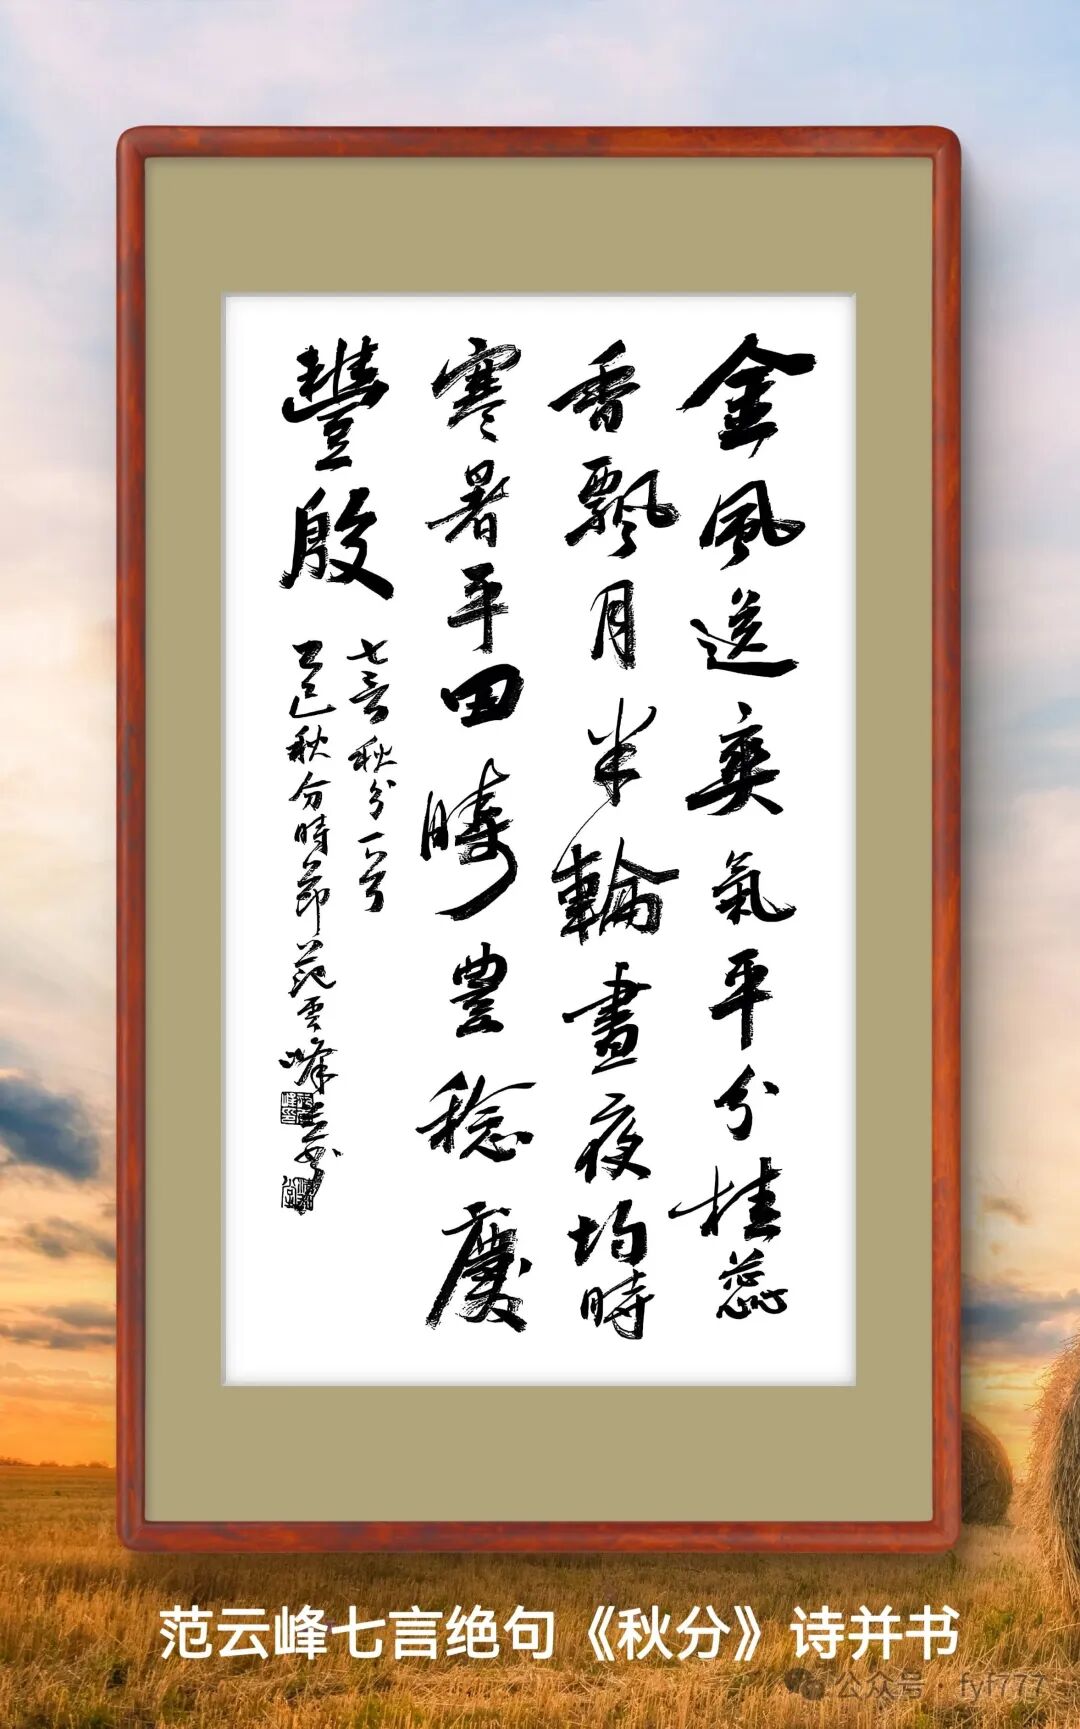 金風送爽氣平分桂蕊
香飄月半輪晝夜均時
寒暑平田疇豊稔慶
豐殷
七言秋分一首
乙巳秋分時節范雲峰
范云峰七言绝句《秋分》诗并书
公众号·fyf777